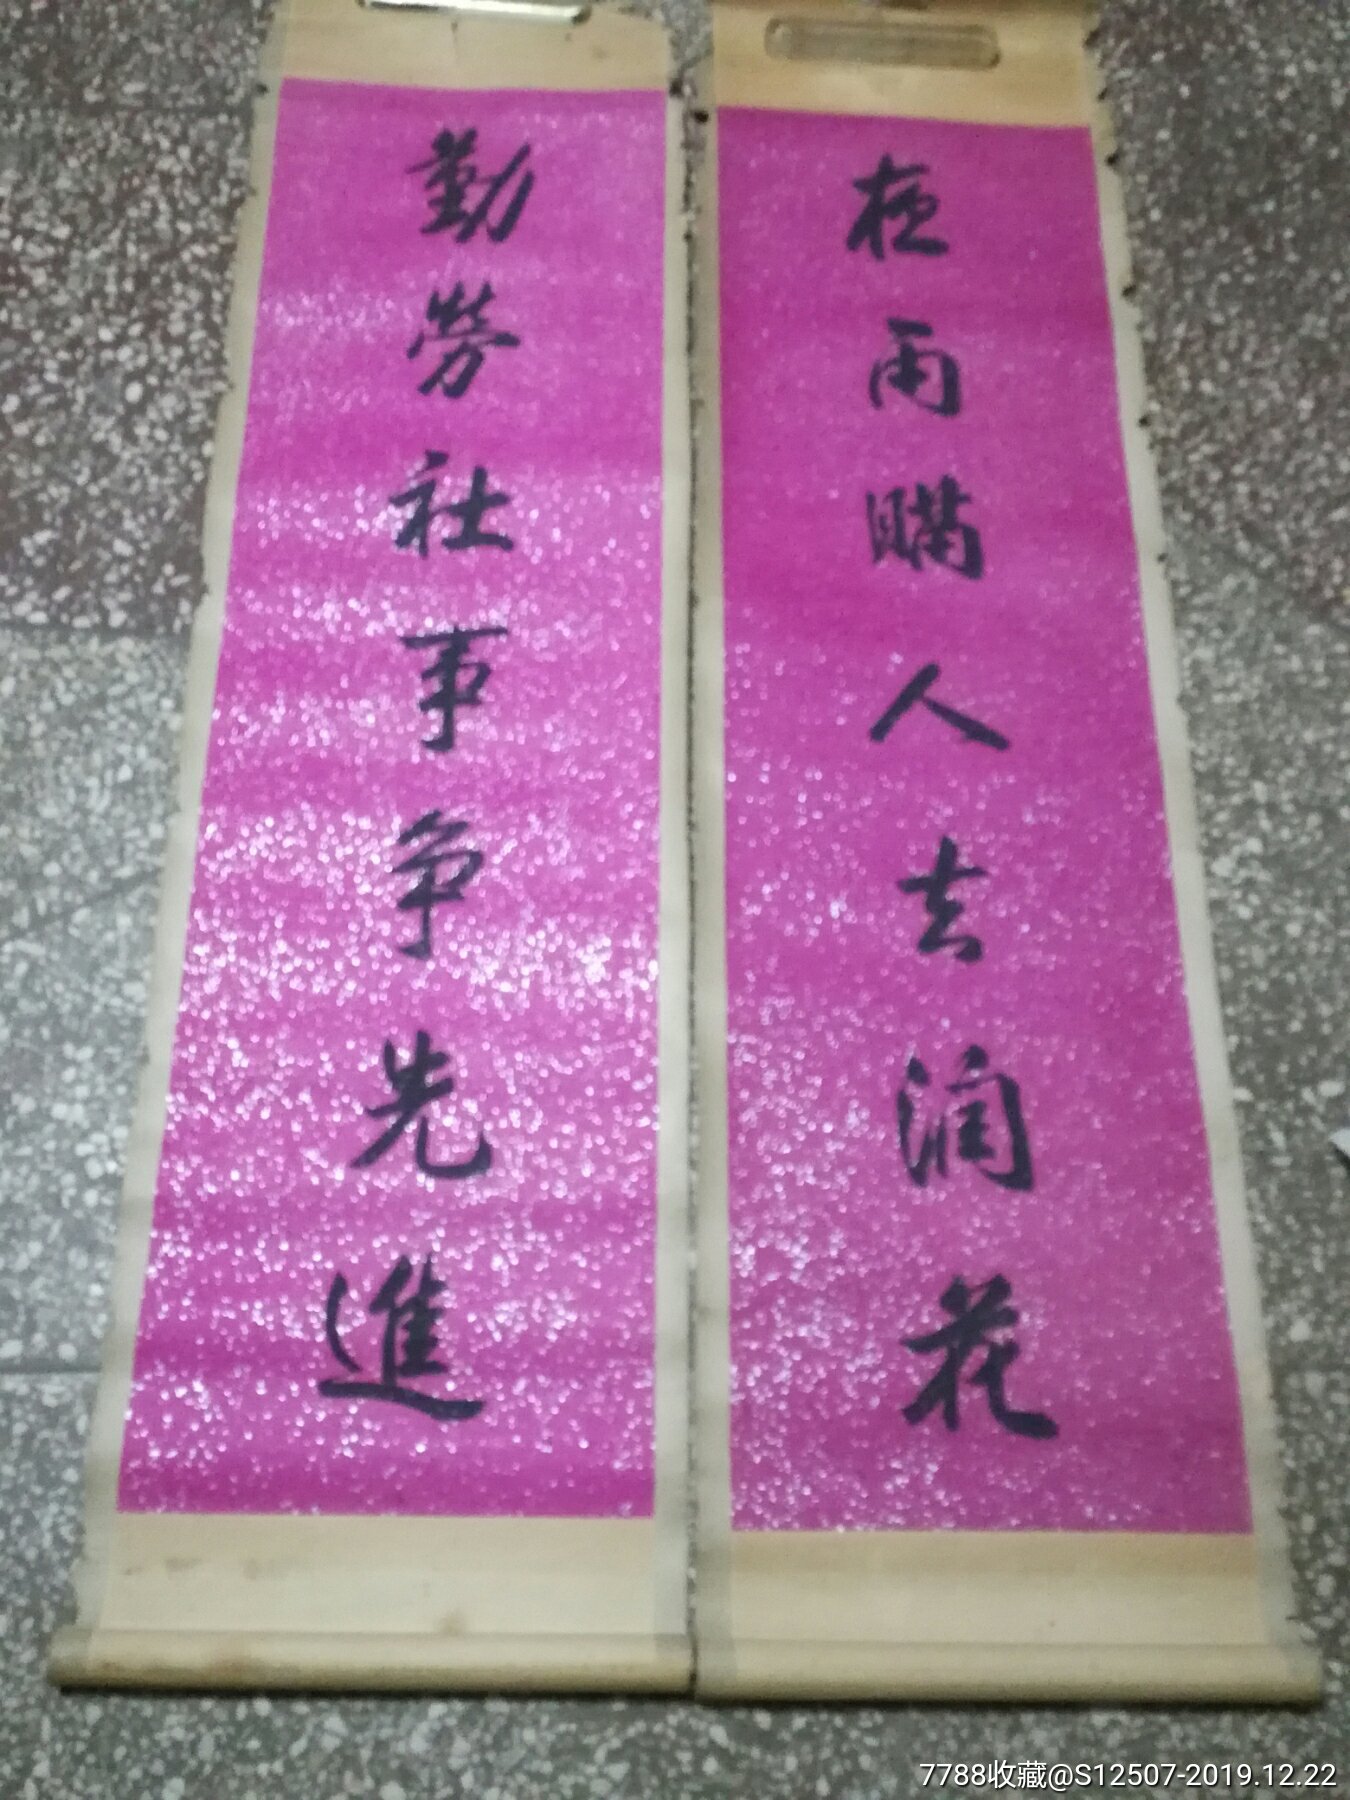 夜雨瞒人去润花
勤劳社事争先進
7788收藏@S12507-2019.12.22